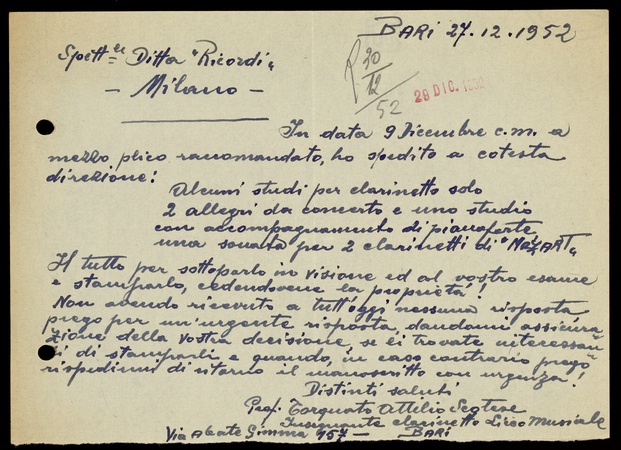 BARI 27.12.1952
Spett.le Ditta "Ricordi"
- Milano -
R 30/12 52
29 DIC. 1952
In data 9 Dicembre c.m. a
mezzo plico racomandato, ho spedito a cotesta
direzione:
Alcuni studi per clarinetto solo
2 allegri da concerto e uno studio
con accompagnamento di pianoforte
una sonata per 2 clarinetti di "MOZART"
Il tutto per sottoporlo in visione ed al vostro esame
e stamparlo, cedendovene la proprietà!
Non avendo ricevuto a tutt'oggi nessuna risposta
prego per un'urgente risposta, dandomi assicura=
zione della vostra decisione, se li trovate interessan=
ti di stamparli e quando, in caso contrario prego
rispedirmi di ritorno il manoscritto con urgenza!
Distinti saluti
Prof. Torquato Attilio Scotese
Insegnante clarinetto Liceo Musicale
Via Abate Gimma 157 - BARI